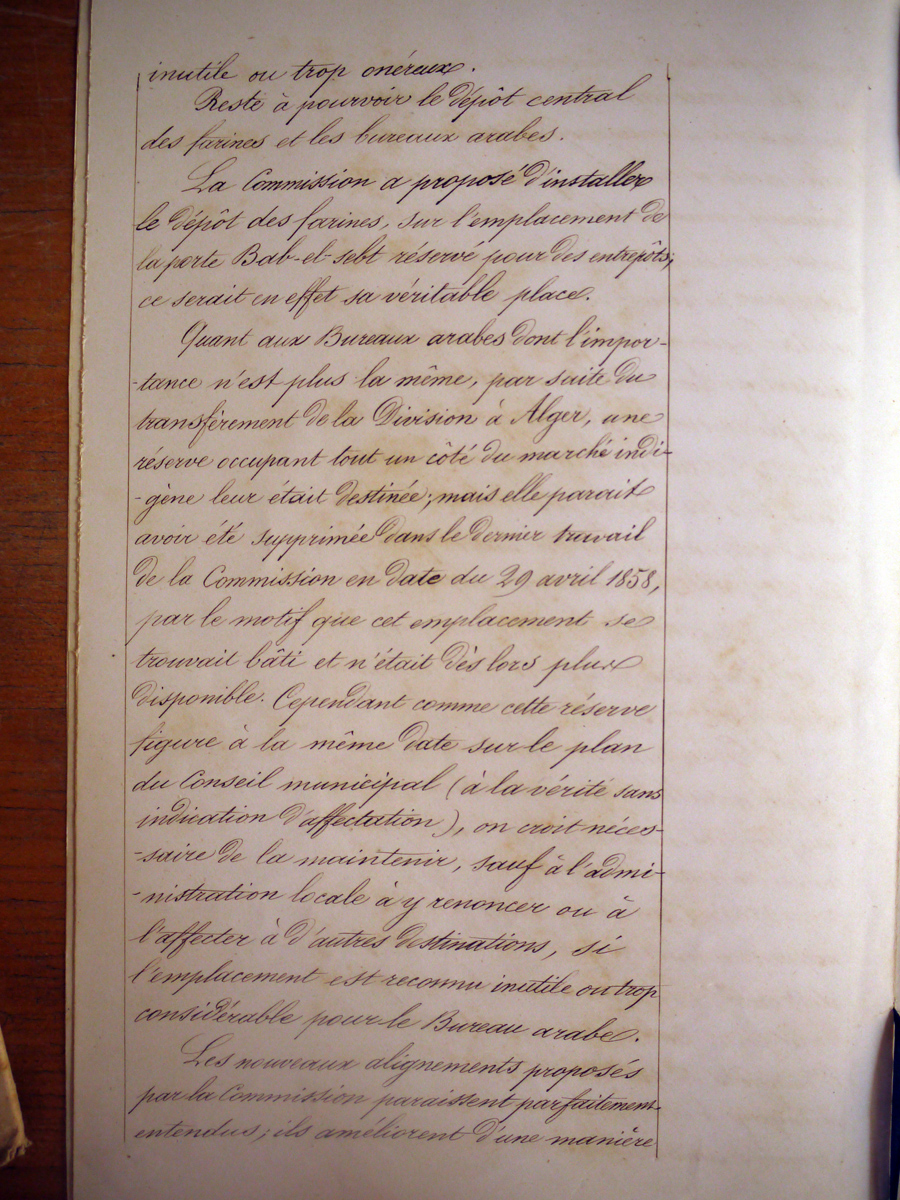 inutile ou trop onéreux.
Reste à pourvoir le dépôt central
des farines et les bureaux arabes.
La Commission a proposé d'installer
le dépôt des farines, sur l'emplacement de
la porte Bab-el-sebt réservé pour des entrepôts;
ce serait en effet sa véritable place.
Quant aux Bureaux arabes dont l'impor-
-tance n'est plus la même, par suite du
transfèrement de la Division à Alger, une
réserve occupant tout un côté du marché indi-
-gène leur était destinée; mais elle parait
avoir été supprimée dans le dernier travail
de la Commission en date du 29 avril 1858,
par le motif que cet emplacement se
trouvait bâti et n'était dès lors plus
disponible. Cependant comme cette réserve
figure à la même date sur le plan
du Conseil municipal (à la vérité sans
indication d'affectation), on croit néces-
-saire de la maintenir, sauf à l'admi-
-nistration locale à y renoncer ou à
l'affecter à d'autres destinations, si
l'emplacement est reconnu inutile ou trop
considérable pour le Bureau arabe.
Les nouveaux alignements proposés
par la Commission paraissent parfaitement
entendus; ils améliorent d'une manière